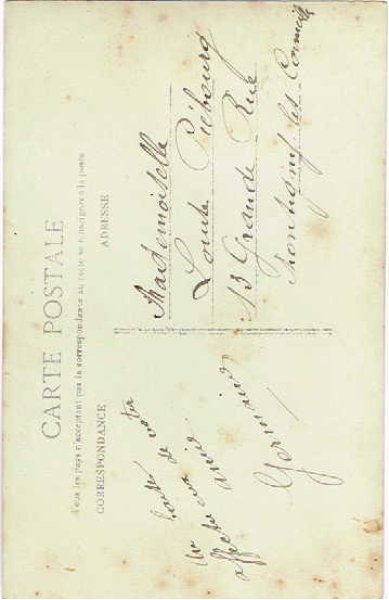 CARTE POSTALE
Tous les pays n'acceptent pas la correspondance au recto se renseigner à la poste
CORRESPONDANCE
ADRESSE
de votre
affectueuse amie
Germaine
Mademoiselle
Louise
13 Grande Rue
les Cormeille